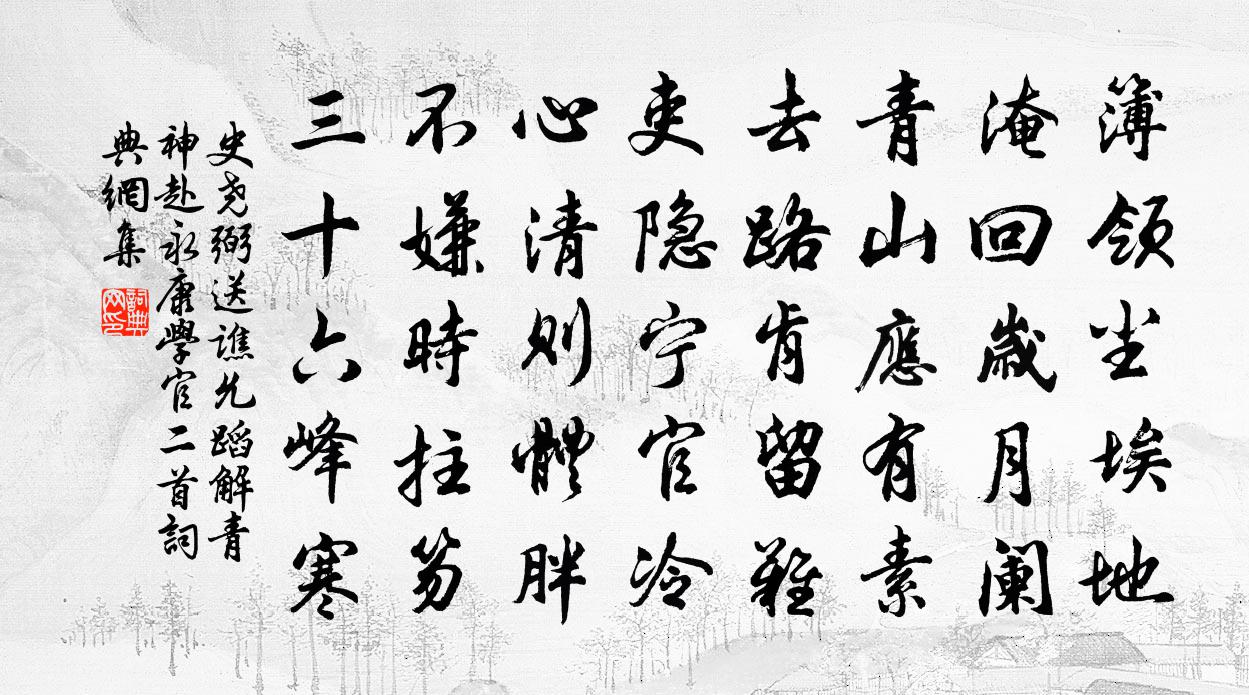 簿领尘埃地
淹回岁月阑
青山應有素
去路肯留難
吏隐宁官冷
心清则體胖
不嫌時拄笏
三十六峰寒
史堯弼送譙允蹈解青
神赴永康學官二首詞
典網集
詞典
网印